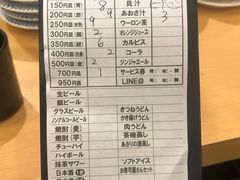 150円皿(青) 8 貝汁
180円皿(黄) 9 あおさ汁 3
200円皿 9 ウーロン茶
260円皿 2 オレンジジュース
350円皿 6 カルピス
400円皿 2 コーラ
500円皿 2 ジンジャエール
700円 サービス券 有(-)・無
950円 1 LINE@ 有(-)・無
生ビール
瓶ビール
グラスビール きつねうどん
ノンアルコールビール かき揚げうどん
焼酎(麦) 肉うどん
焼酎(芋) 茶碗蒸し
チューハイ あさりの酒蒸し
ハイボール
抹茶サワー ソフトアイス
日本酒 お寿司屋さんセット
日本酒